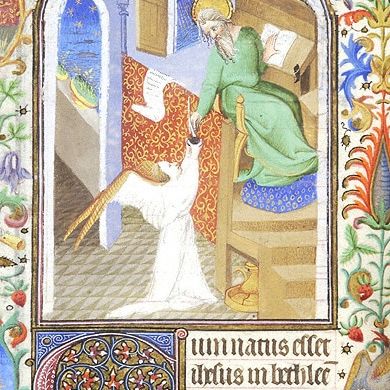 um natus esset
ihesus in bethlee